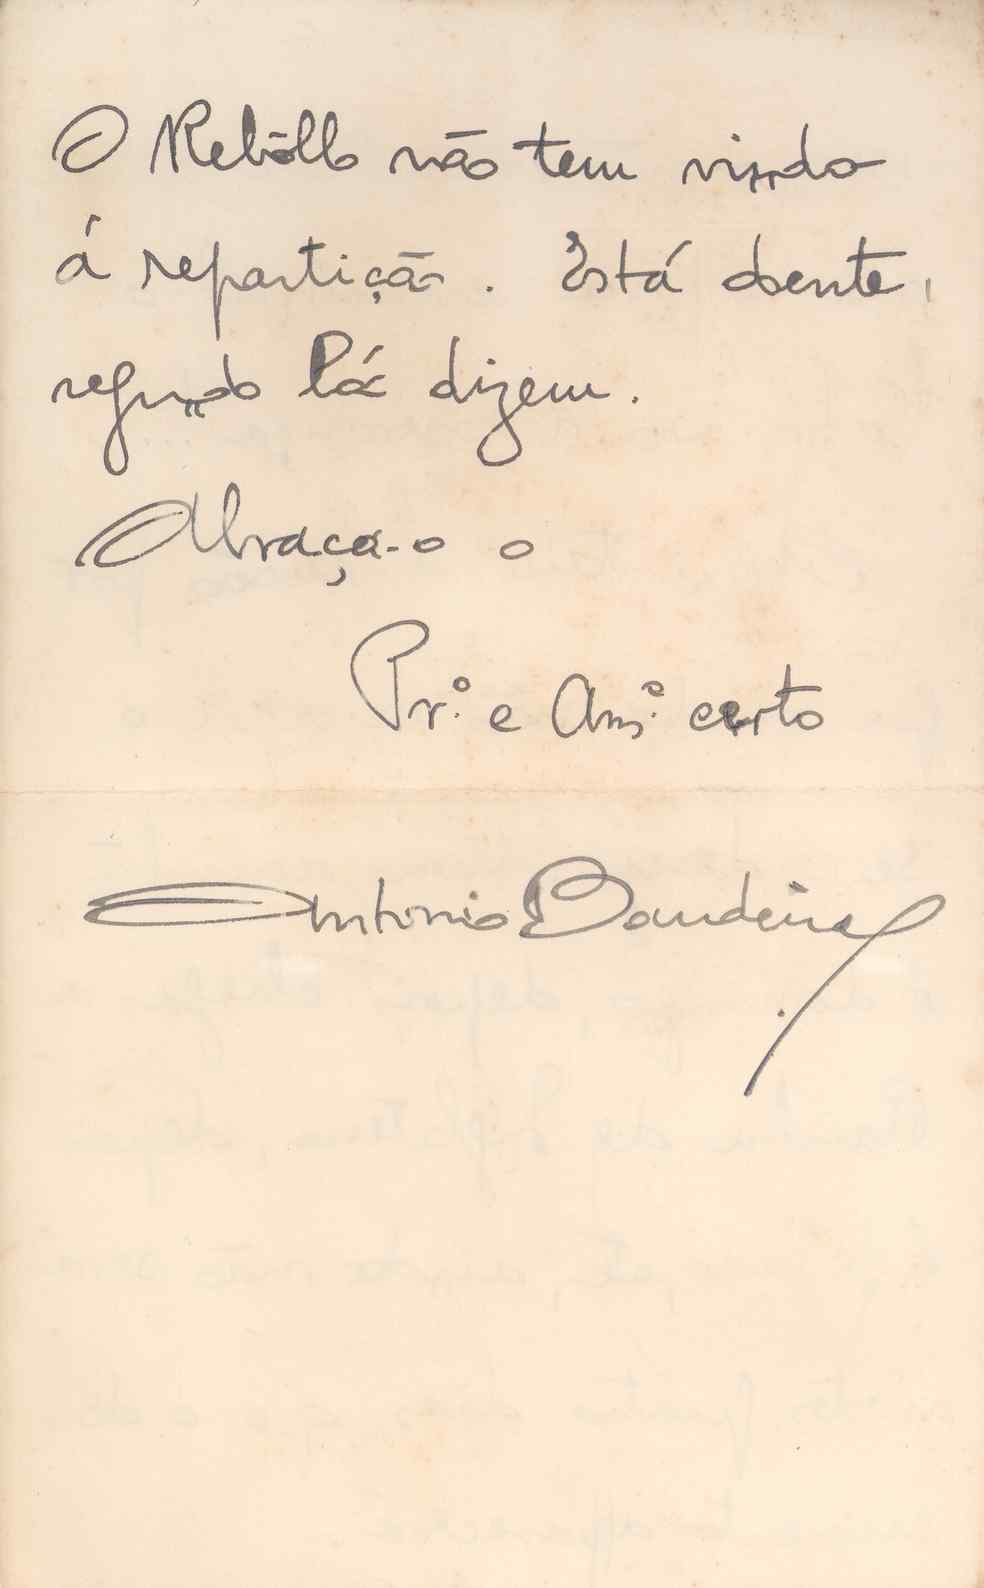 O Rebôllo não tem vindo
á repartição. Está doente,
segundo lá dizem.
Abraça-o o
Pr.º e Am.º certo
Antonio Bandeira